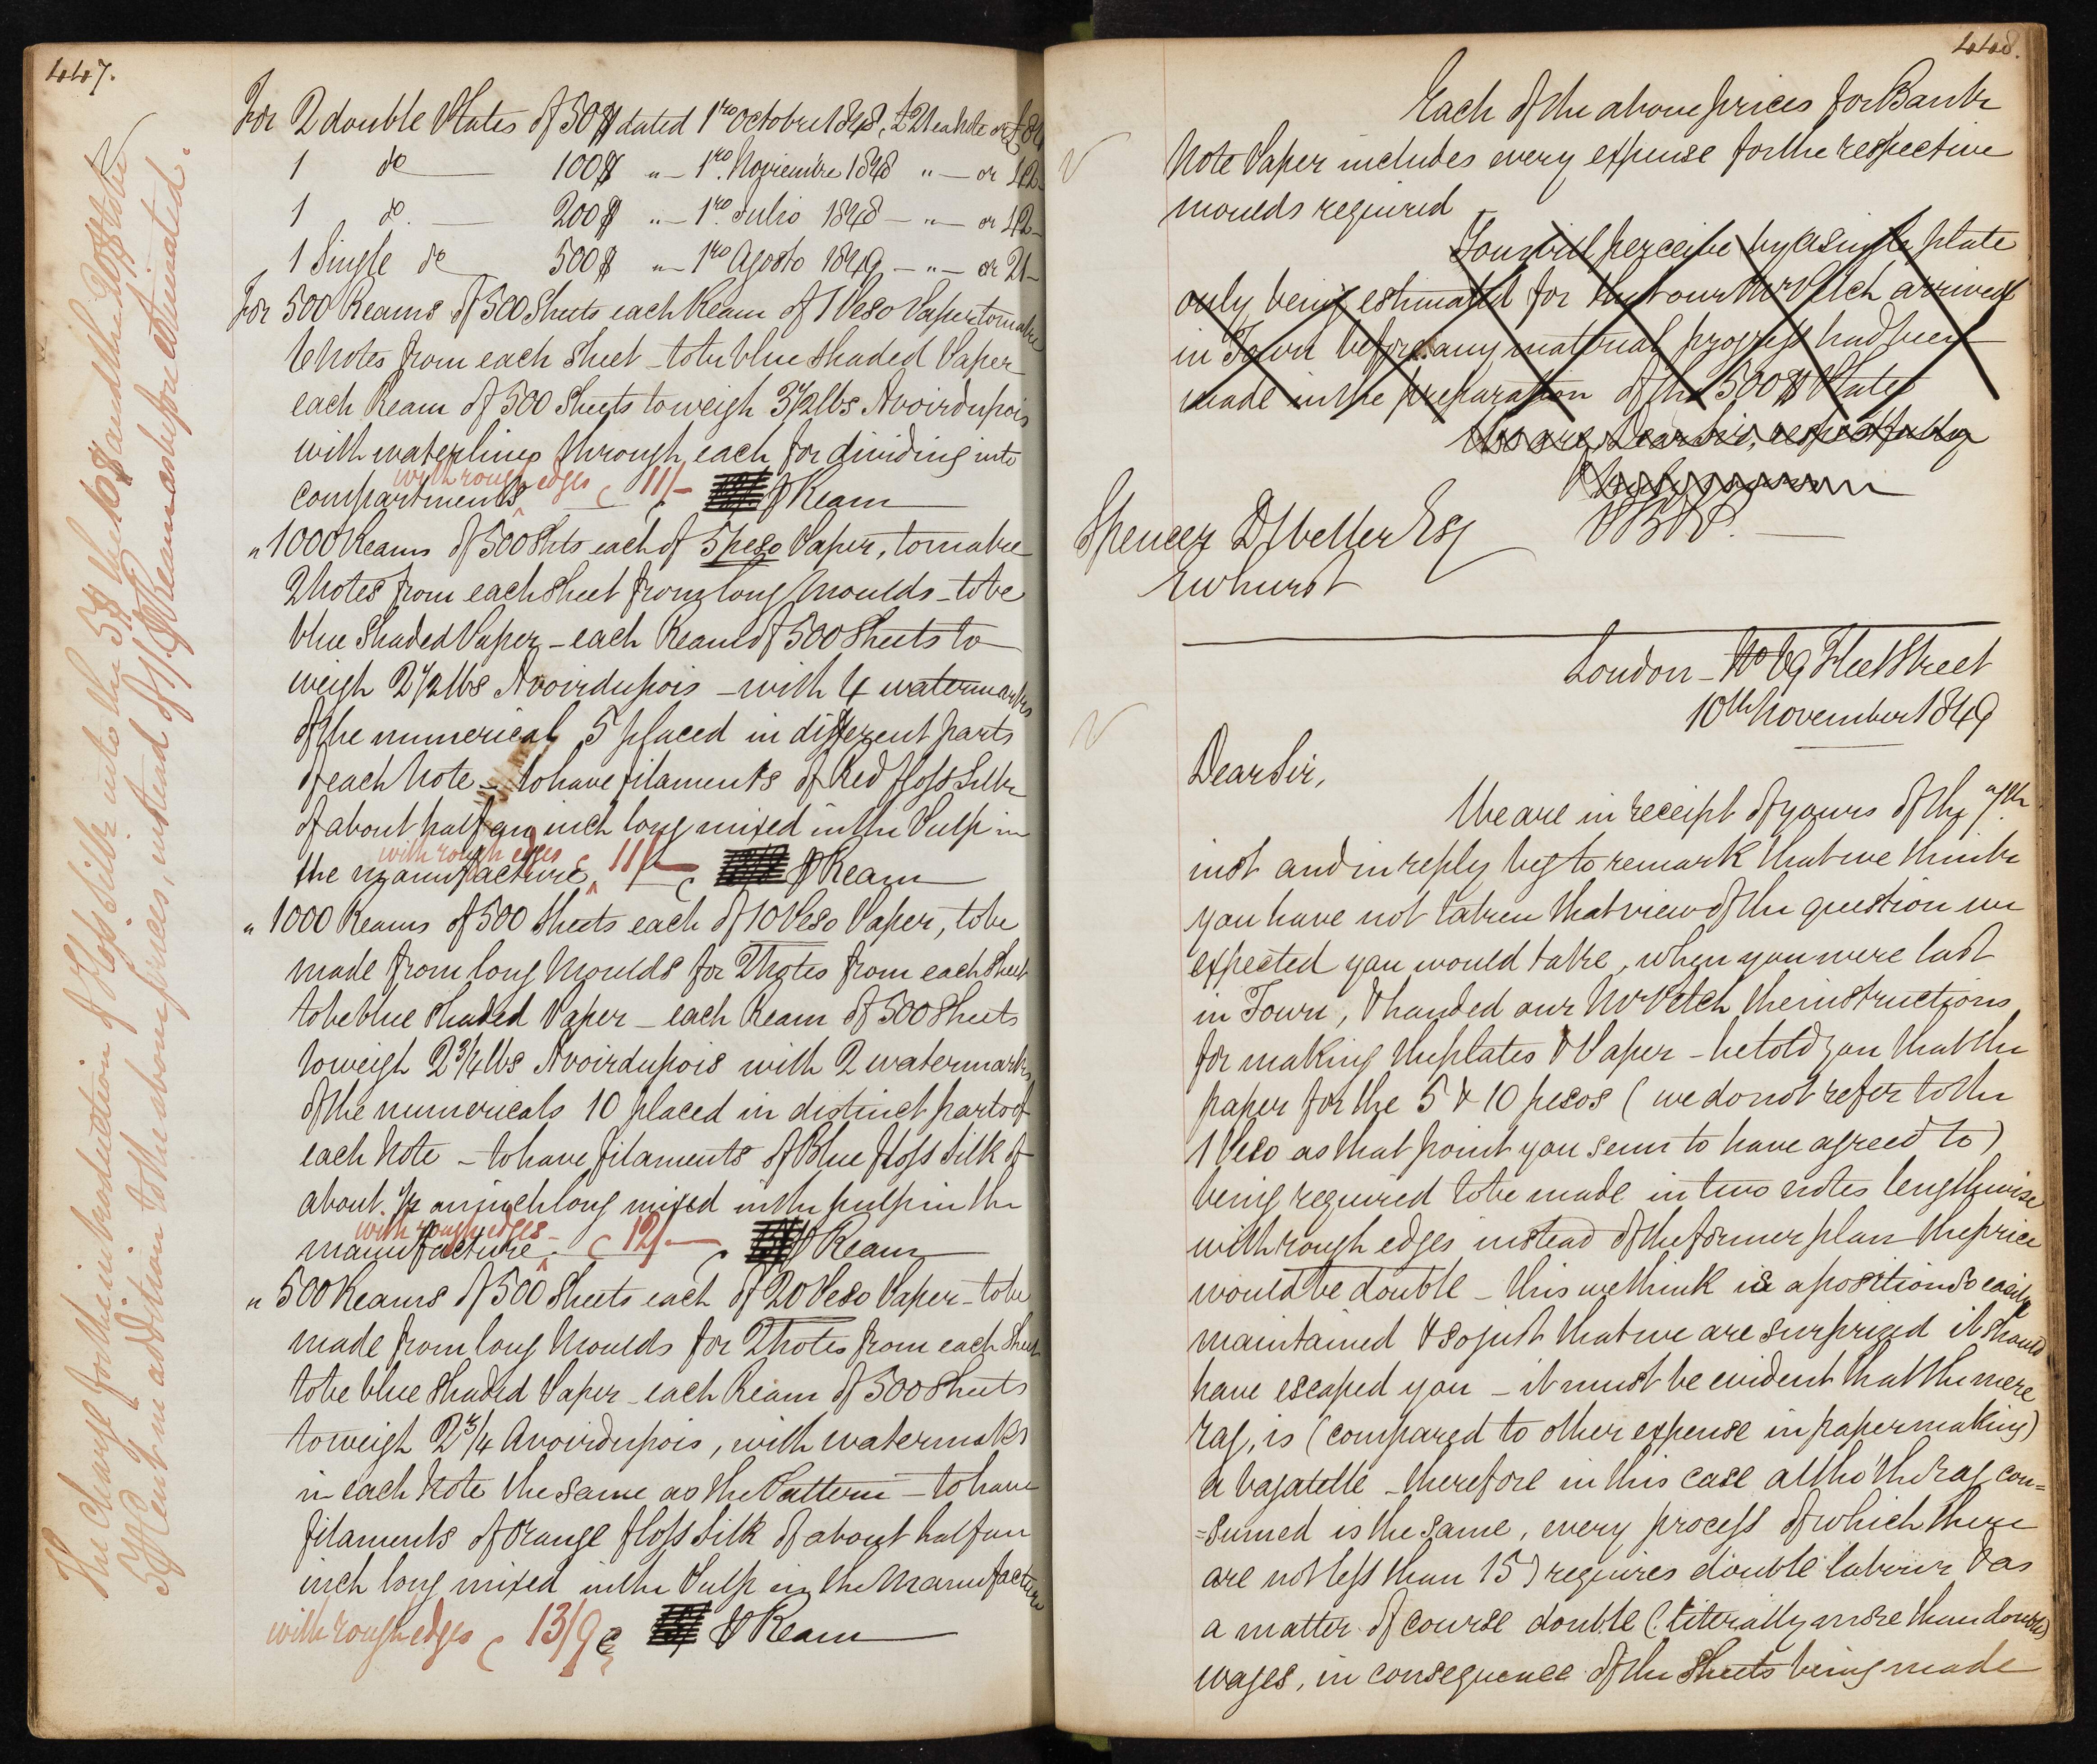 447.
For 2 double Plates of 50$ dated 1ro Octobre 1848, £21 each Note or £84
1 do 100$ " 1ro. Noviembre 1848 " or 42
1 do. 200$ " 1ro. Julio 1848 " or 42
1 Single do 500$ " 1ro Agosto 1849 " or 21
For 500 Reams of 500 Sheets each Ream of 1 Peso Paper to make
6 Notes from each Sheet - to be blue shaded Paper
each Ream of 500 Sheets to weigh 3½ lbs Avoirdupois
with waterlines through each for dividing into
compartments with rough edges 11/- ⅌ Ream
" 1000 Reams of 500 Shts each of 5 peso Paper, to make
2 Notes from each Sheet from long Moulds - to be
blue Shaded Paper - each Ream of 500 Sheets to
weigh 2½ lbs Avoirdupois - with 4 watermarks
of the numerical 5 placed in different parts
of each Note - to have filaments of Red floss Silk
of about half an inch long mixed in the Pulp in
the manufacture, with rough edges 11/- ⅌ Ream
" 1000 Reams of 500 Sheets each of 10 Peso Paper, to be
made from long Moulds for 2 Notes from each Sheet
to be blue Shaded Paper - each Ream of 500 Sheets
to weigh 2¾ lbs Avoirdupois with 2 watermarks
of the numericals 10 placed in distinct parts of
each Note - to have filaments of Blue floss Silk of
about ½ an inch long mixed in the pulp in the
manufacture with rough edges - 12/- ⅌ Ream
" 500 Reams of 500 Sheets each of 20 Peso Paper - to be
made from long Moulds for 2 Notes from each Sheet
to be blue Shaded Paper - each Ream of 500 Sheets
to weigh 2¾ Avoirdupois, with watermaks
in each Note the same as the Pattern - to have
filaments of Orange floss Silk of about half an
inch long mixed in the Pulp in the Manufacture
with rough edges 13/9 ⅌ Ream
The charge for the introduction of Floss Silk into the 5$ the 10$ and the 20$ to be
5 ⅌ Cent in addition to the above prices, instead of 1/. ⅌ Ream as before estimated.
448.
Each of the above prices for Bank
Note Paper includes every expense for the respective
moulds required
You will perceive by a single plate
only being estimated for that our Mr Petch arrived
in Town before any material progress had been
made in the preparation of the 500$ Plates
We are, Dear Sir, respectfully
PB&P.
Spencer D Weller Esq
Ewhurst
London - No 69 Fleet Street
10th November 1849
Dear Sir,
We are in receipt of yours of the 7th.
inst and in reply beg to remark that we think
you have not taken that view of the question we
expected you would take, when you were last
in Town, & handed our Mr Petch the instructions
for making the plates & Paper - he told you that the
paper for the 5 & 10 pesos (we do not refer to the
1 Peso as that point you seem to have agreed to)
being required to be made in two notes lengthwise
with rough edges instead of the former plan the price
would be double - this we think is a position so easily
maintained & so just that we are surprized it should
have escaped you - it must be evident that the mere
rag, is (compared to other expense in paper making)
a bagatelle - therefore in this case altho' the rag con=
=sumed is the same, every process of which there
are not less than 15) requires double labour & as
a matter of course double (literally more than double)
wages, in consequence of the sheets being made